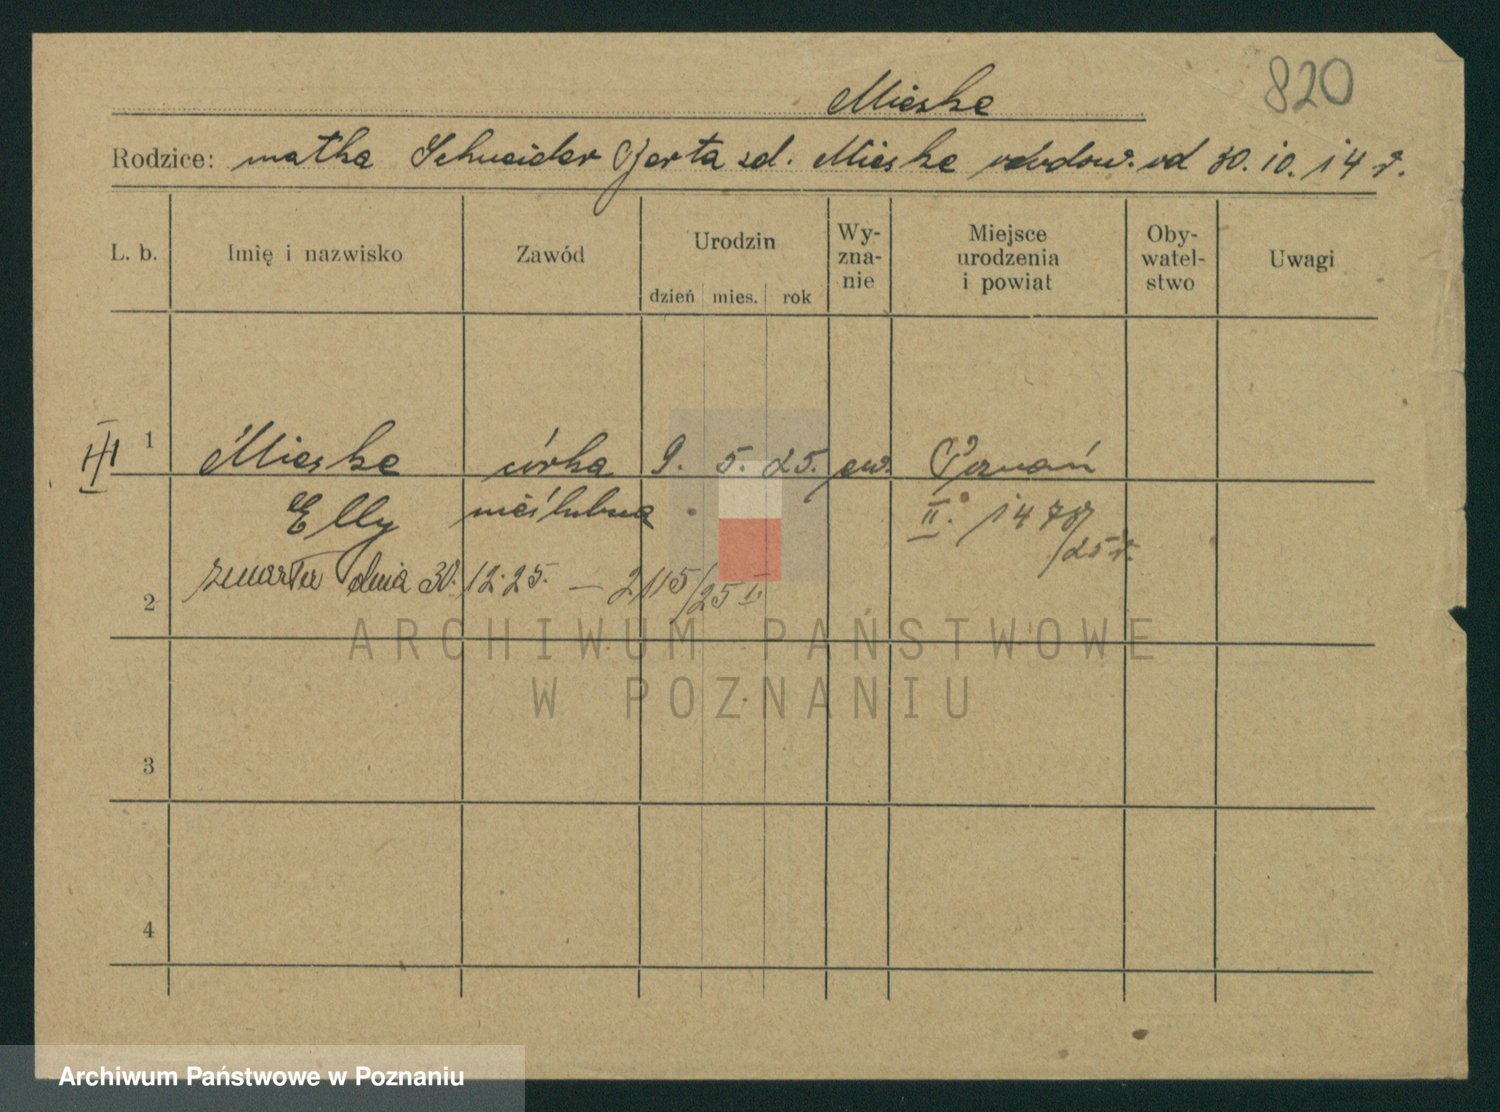 820
Mieske
Rodzice: matka Schneider Gerta zd. Mieske owdow. od 30. 10. 14 r.
L. b. Imię i nazwisko Zawód Urodzin dzień mies. rok Wy-zna-nie Miejsce urodzenia i powiat Oby-watel-stwo Uwagi
III 1 Mieske córka 9. 5. 25. ew. Poznań
Elly nieślubna II. 1478/25 r.
2 zmarła dnia 30. 12. 25. — 2115/25 II.
ARCHIWUM PAŃSTWOWE
W POZNANIU
3
4
Archiwum Państwowe w Poznaniu